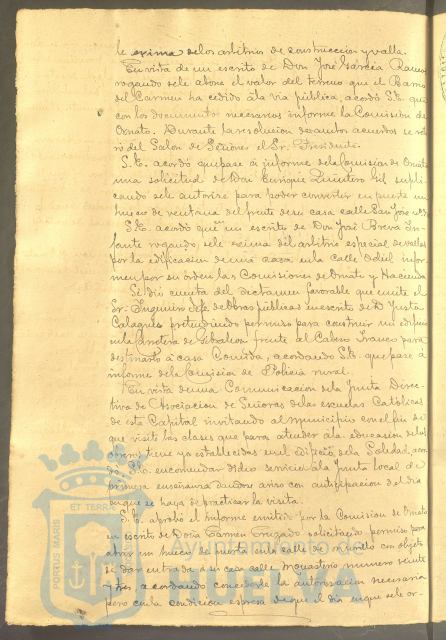 le exima de los arbitrios de construccion y valla.
En vista de un escrito de Don José García Ramos
rogando se le abone el valor del terreno que el Barrio
del Carmen ha cedido á la via pública, acordó S.E. que
con los documentos necesarios informe la Comision de
Ornato. Durante la resolucion de ambos acuerdos se reti
ró del Salon de Sesiones el Sr. Presidente.
S.E. acordó que pase á informe de la Comision de Ornato
una solicitud de Don Enrique Quintero Gil supli
cando se le autorice para poder convertir en puerta un
hueco de ventana del frente de su casa calle San José
S.E. acordó que un escrito de Don José Breva In-
fante rogando, se le exima del arbitrio especial de vallas
por la edificacion de una casa en la calle Odiel infor
men por su orden las Comisiones de Ornato y Hacienda
Se dió cuenta del dictamen favorable que emite el
Sr. Ingeniero Jefe de obras públicas en escrito de D. Justo
pretendiendo permiso para construir un edificio
en la carretera de Gibraleon frente al Cabezo para
destinarlo á casa Comida, acordando S.E. que pase á
informe de la Comision de Policia rural.
En vista de una Comunicacion de la Junta Direc-
tiva de Asociacion de Señoras de las escuelas Católicas
de esta Capital invitando al Municipio con el fin de
que visite las clases que para atender á la educacion de los
obreros tiene ya establecidas en el edificio de la Soledad, acor
dó S.E. encomendar dicho servicio á la Junta local de
primera enseñanza dandose aviso con anticipacion del dia
en que se haya de practicar la visita.
S.E. aprobó el informe emitido por la Comision de Ornato
en escrito de Doña Carmen Cruzado solicitando permiso para
abrir un hueco de puerta en la calle de con objeto
de dar entrada á su casa calle Monasterio número veinte
y tres, acordando concederle la autorizacion necesaria
pero con la condicion espresa de que el dia en que se le or-
PORTUS MARIS
ET TERRAE
Ayuntamiento de
HUELVA